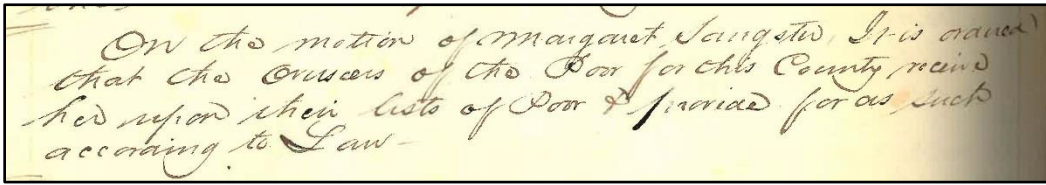 On the motion of Margaret Sangster, It is ordered
that the Overseers of the Poor for this County receive
her upon their lists of Poor & provide for as such
according to Law -